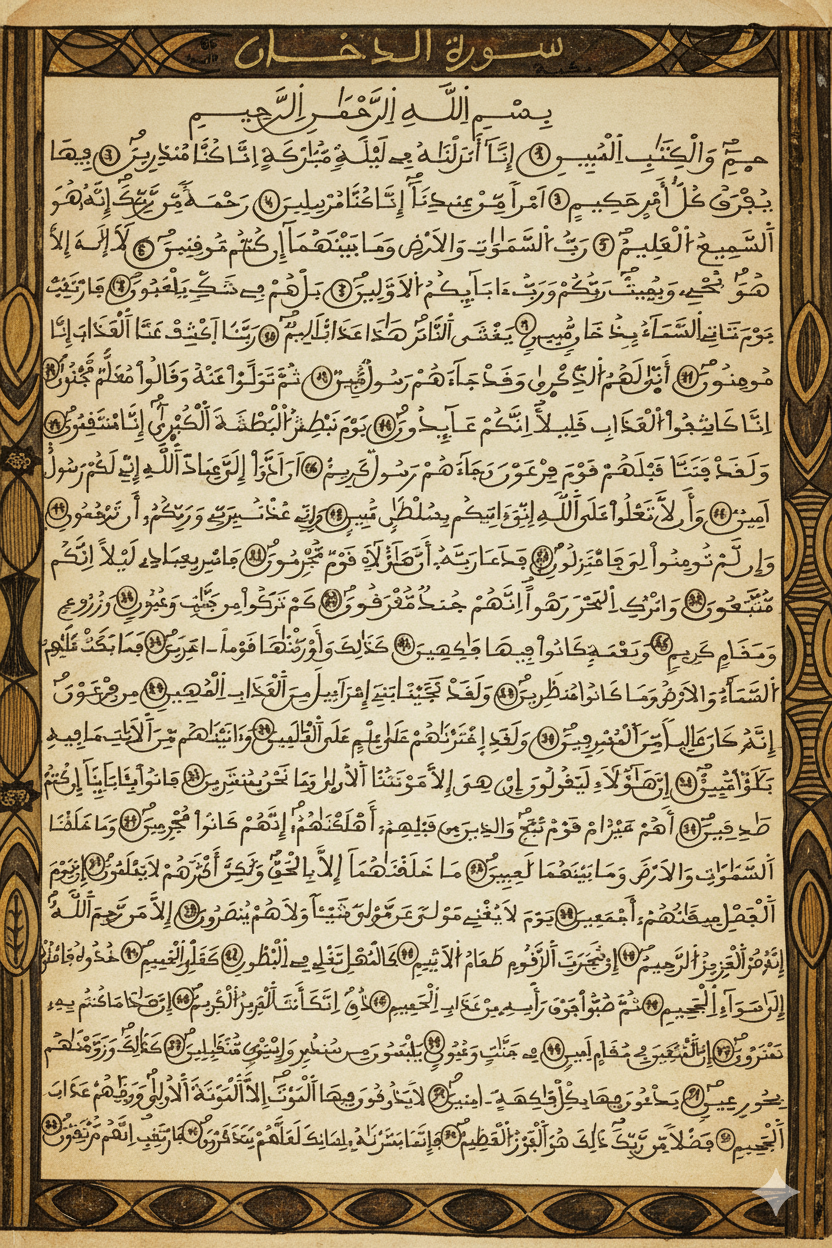 سورة الدخان
بِسْمِ اِللَّهِ اِلرَّحْمَٰنِ اِلرَّحِيمِ
حمٓ وَالْكِتَٰبِ اِلْمُبِينِ إِنَّآ أَنزَلْنَٰهُ فِے لَيْلَةٖ مُّبَٰرَكَةٍ اِنَّا كُنَّا مُنذِرِينَ فِيهَا
يُفْرَقُ كُلُّ أَمْرٍ حَكِيمٍ اَمْراٗ مِّنْ عِندِنَآ إِنَّا كُنَّا مُرْسِلِينَ رَحْمَةٗ مِّن رَّبِّكَ إِنَّهُۥ هُوَ
اَلسَّمِيعُ اُلْعَلِيمُ رَبُّ اُلسَّمَٰوَٰتِ وَالَارْضِ وَمَا بَيْنَهُمَآ إِن كُنتُم مُّوقِنِينَ لَآ إِلَٰهَ إِلَّا
هُوَ يُحْيِۦ وَيُمِيتُ رَبُّكُمْ وَرَبُّ ءَابَآئِكُمُ اُلَاوَّلِينَ بَلْ هُمْ فِے شَكّٖ يَلْعَبُونَ فَارْتَقِبْ
يَوْمَ تَاتِے اِلسَّمَآءُ بِدُخَانٖ مُّبِينٖ يَغْشَى اَلنَّاسَ هَٰذَا عَذَابٌ اَلِيمٞ رَّبَّنَا اَكْشِفْ عَنَّا اَلْعَذَابَ إِنَّا
مُومِنُونَ أَنّٰى لَهُمُ اُلذِّكْرٰى وَقَدْ جَآءَهُمْ رَسُولٞ مُّبِينٞ ثُمَّ تَوَلَّوْاْ عَنْهُ وَقَالُواْ مُعَلَّمٞ مَّجْنُونٌ
اِنَّا كَاشِفُواْ اُلْعَذَابِ قَلِيلاً اِنَّكُمْ عَآئِدُونَ يَوْمَ نَبْطِشُ اُلْبَطْشَةَ اَلْكُبْرٰىٓ إِنَّا مُنتَقِمُونَ
وَلَقَدْ فَتَنَّا قَبْلَهُمْ قَوْمَ فِرْعَوْنَ وَجَآءَهُمْ رَسُولٞ كَرِيمٌ اَنَ اَدُّوٓاْ إِلَيَّ عِبَادَ اَللَّهِ إِنِّے لَكُمْ رَسُولٌ
اَمِينٞ وَأَن لَّا تَعْلُواْ عَلَى اَللَّهِ إِنِّيَ ءَاتِيكُم بِسُلْطَٰنٖ مُّبِينٖ وَإِنِّے عُذْتُ بِرَبِّے وَرَبِّكُمُۥٓ أَن تَرْجُمُونِ
وَإِن لَّمْ تُومِنُواْ لِيَ فَاعْتَزِلُونِ فَدَعَا رَبَّهُۥٓ أَنَّ هَٰٓؤُلَآءِ قَوْمٞ مُّجْرِمُونَ فَاسْرِ بِعِبَادِے لَيْلاً اِنَّكُم
مُّتَّبَعُونَ وَاتْرُكِ اِلْبَحْرَ رَهْواً اِنَّهُمْ جُندٞ مُّغْرَقُونَ كَمْ تَرَكُواْ مِن جَنَّٰتٖ وَعُيُونٖ وَزُرُوعٖ
وَمَقَامٖ كَرِيمٖ وَنَعْمَةٖ كَانُواْ فِيهَا فَٰكِهِينَ كَذَٰلِكَ وَأَوْرَثْنَٰهَا قَوْماً اٰخَرِينَ فَمَا بَكَتْ عَلَيْهِمُ
اُلسَّمَآءُ وَالَارْضُ وَمَا كَانُواْ مُنظَرِينَ وَلَقَدْ نَجَّيْنَا بَنِےٓ إِسْرَآءِيلَ مِنَ اَلْعَذَابِ اِلْمُهِينِ مِن فِرْعَوْنَ
إِنَّهُۥ كَانَ عَالِياٗ مِّنَ اَلْمُسْرِفِينَ وَلَقَدِ اِخْتَرْنَٰهُمْ عَلَىٰ عِلْمٍ عَلَى اَلْعَٰلَمِينَ وَءَاتَيْنَٰهُم مِّنَ اَلَايَٰتِ مَا فِيهِ
بَلَٰٓؤٞاْ مُّبِينٌ اِنَّ هَٰٓؤُلَآءِ لَيَقُولُونَ إِنْ هِىَ إِلَّا مَوْتَتُنَا اَلُاولٰى وَمَا نَحْنُ بِمُنشَرِينَ فَاتُواْ بِـَٔابَآئِنَآ إِن كُنتُمْ
صَٰدِقِينَ أَهُمْ خَيْرٌ اَمْ قَوْمُ تُبَّعٖ وَالذِينَ مِن قَبْلِهِمُۥٓ أَهْلَكْنَٰهُمُۥٓ إِنَّهُمْ كَانُواْ مُجْرِمِينَ وَمَا خَلَقْنَا
اَلسَّمَٰوَٰتِ وَالَارْضَ وَمَا بَيْنَهُمَا لَٰعِبِينَ مَا خَلَقْنَٰهُمَآ إِلَّا بِالْحَقِّ وَلَٰكِنَّ أَكْثَرَهُمْ لَا يَعْلَمُونَ إِنَّ يَوْمَ
اَلْفَصْلِ مِيقَٰتُهُمُۥٓ أَجْمَعِينَ يَوْمَ لَا يُغْنِے مَوْلىً عَن مَّوْلىٗ شَيْـٔاٗ وَلَا هُمْ يُنصَرُونَ إِلَّا مَن رَّحِمَ اَللَّهُ
إِنَّهُۥ هُوَ اَلْعَزِيزُ اُلرَّحِيمُ إِنَّ شَجَرَتَ اَلزَّقُّومِ طَعَامُ اُلَاثِيمِ كَالْمُهْلِ تَغْلِے فِے اِلْبُطُونِ كَغَلْيِ اِلْحَمِيمِ خُذُوهُ فَاعْتُلُوهُ
إِلَىٰ سَوَآءِ اِلْجَحِيمِ ثُمَّ صُبُّواْ فَوْقَ رَأْسِهِۦ مِنْ عَذَابِ اِلْحَمِيمِ ذُقِ اِنَّكَ أَنتَ اَلْعَزِيزُ اُلْكَرِيمُ إِنَّ هَٰذَا مَا كُنتُم بِهِۦ
تَمْتَرُونَ إِنَّ اَلْمُتَّقِينَ فِے مُقَامٍ اَمِينٖ فِے جَنَّٰتٖ وَعُيُونٖ يَلْبَسُونَ مِن سُندُسٖ وَإِسْتَبْرَقٖ مُّتَقَٰبِلِينَ كَذَٰلِكَ وَزَوَّجْنَٰهُم
بِحُورٍ عِينٖ يَدْعُونَ فِيهَا بِكُلِّ فَٰكِهَةٍ اٰمِنِينَ لَا يَذُوقُونَ فِيهَا اَلْمَوْتَ إِلَّا اَلْمَوْتَةَ اَلُاولٰى وَوَقٰىٰهُمْ عَذَابَ
اَلْجَحِيمِ فَضْلاٗ مِّن رَّبِّكَ ذَٰلِكَ هُوَ اَلْفَوْزُ اُلْعَظِيمُ فَإِنَّمَا يَسَّرْنَٰهُ بِلِسَانِكَ لَعَلَّهُمْ يَتَذَكَّرُونَ فَارْتَقِبِ اِنَّهُم مُّرْتَقِبُونَ